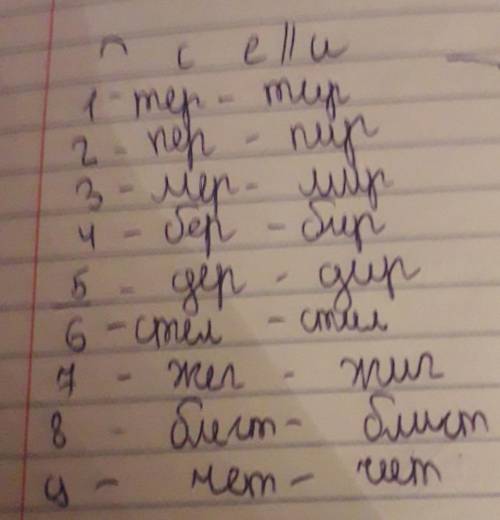 ⌒ с е//и
1 - тер - тир
2 - пер - пир
3 - мер - мир
4 - бер - бир
5 - дер - дир
6 - стел - стил
7 - жег - жиг
8 - блест - блист
9 - чет - чет